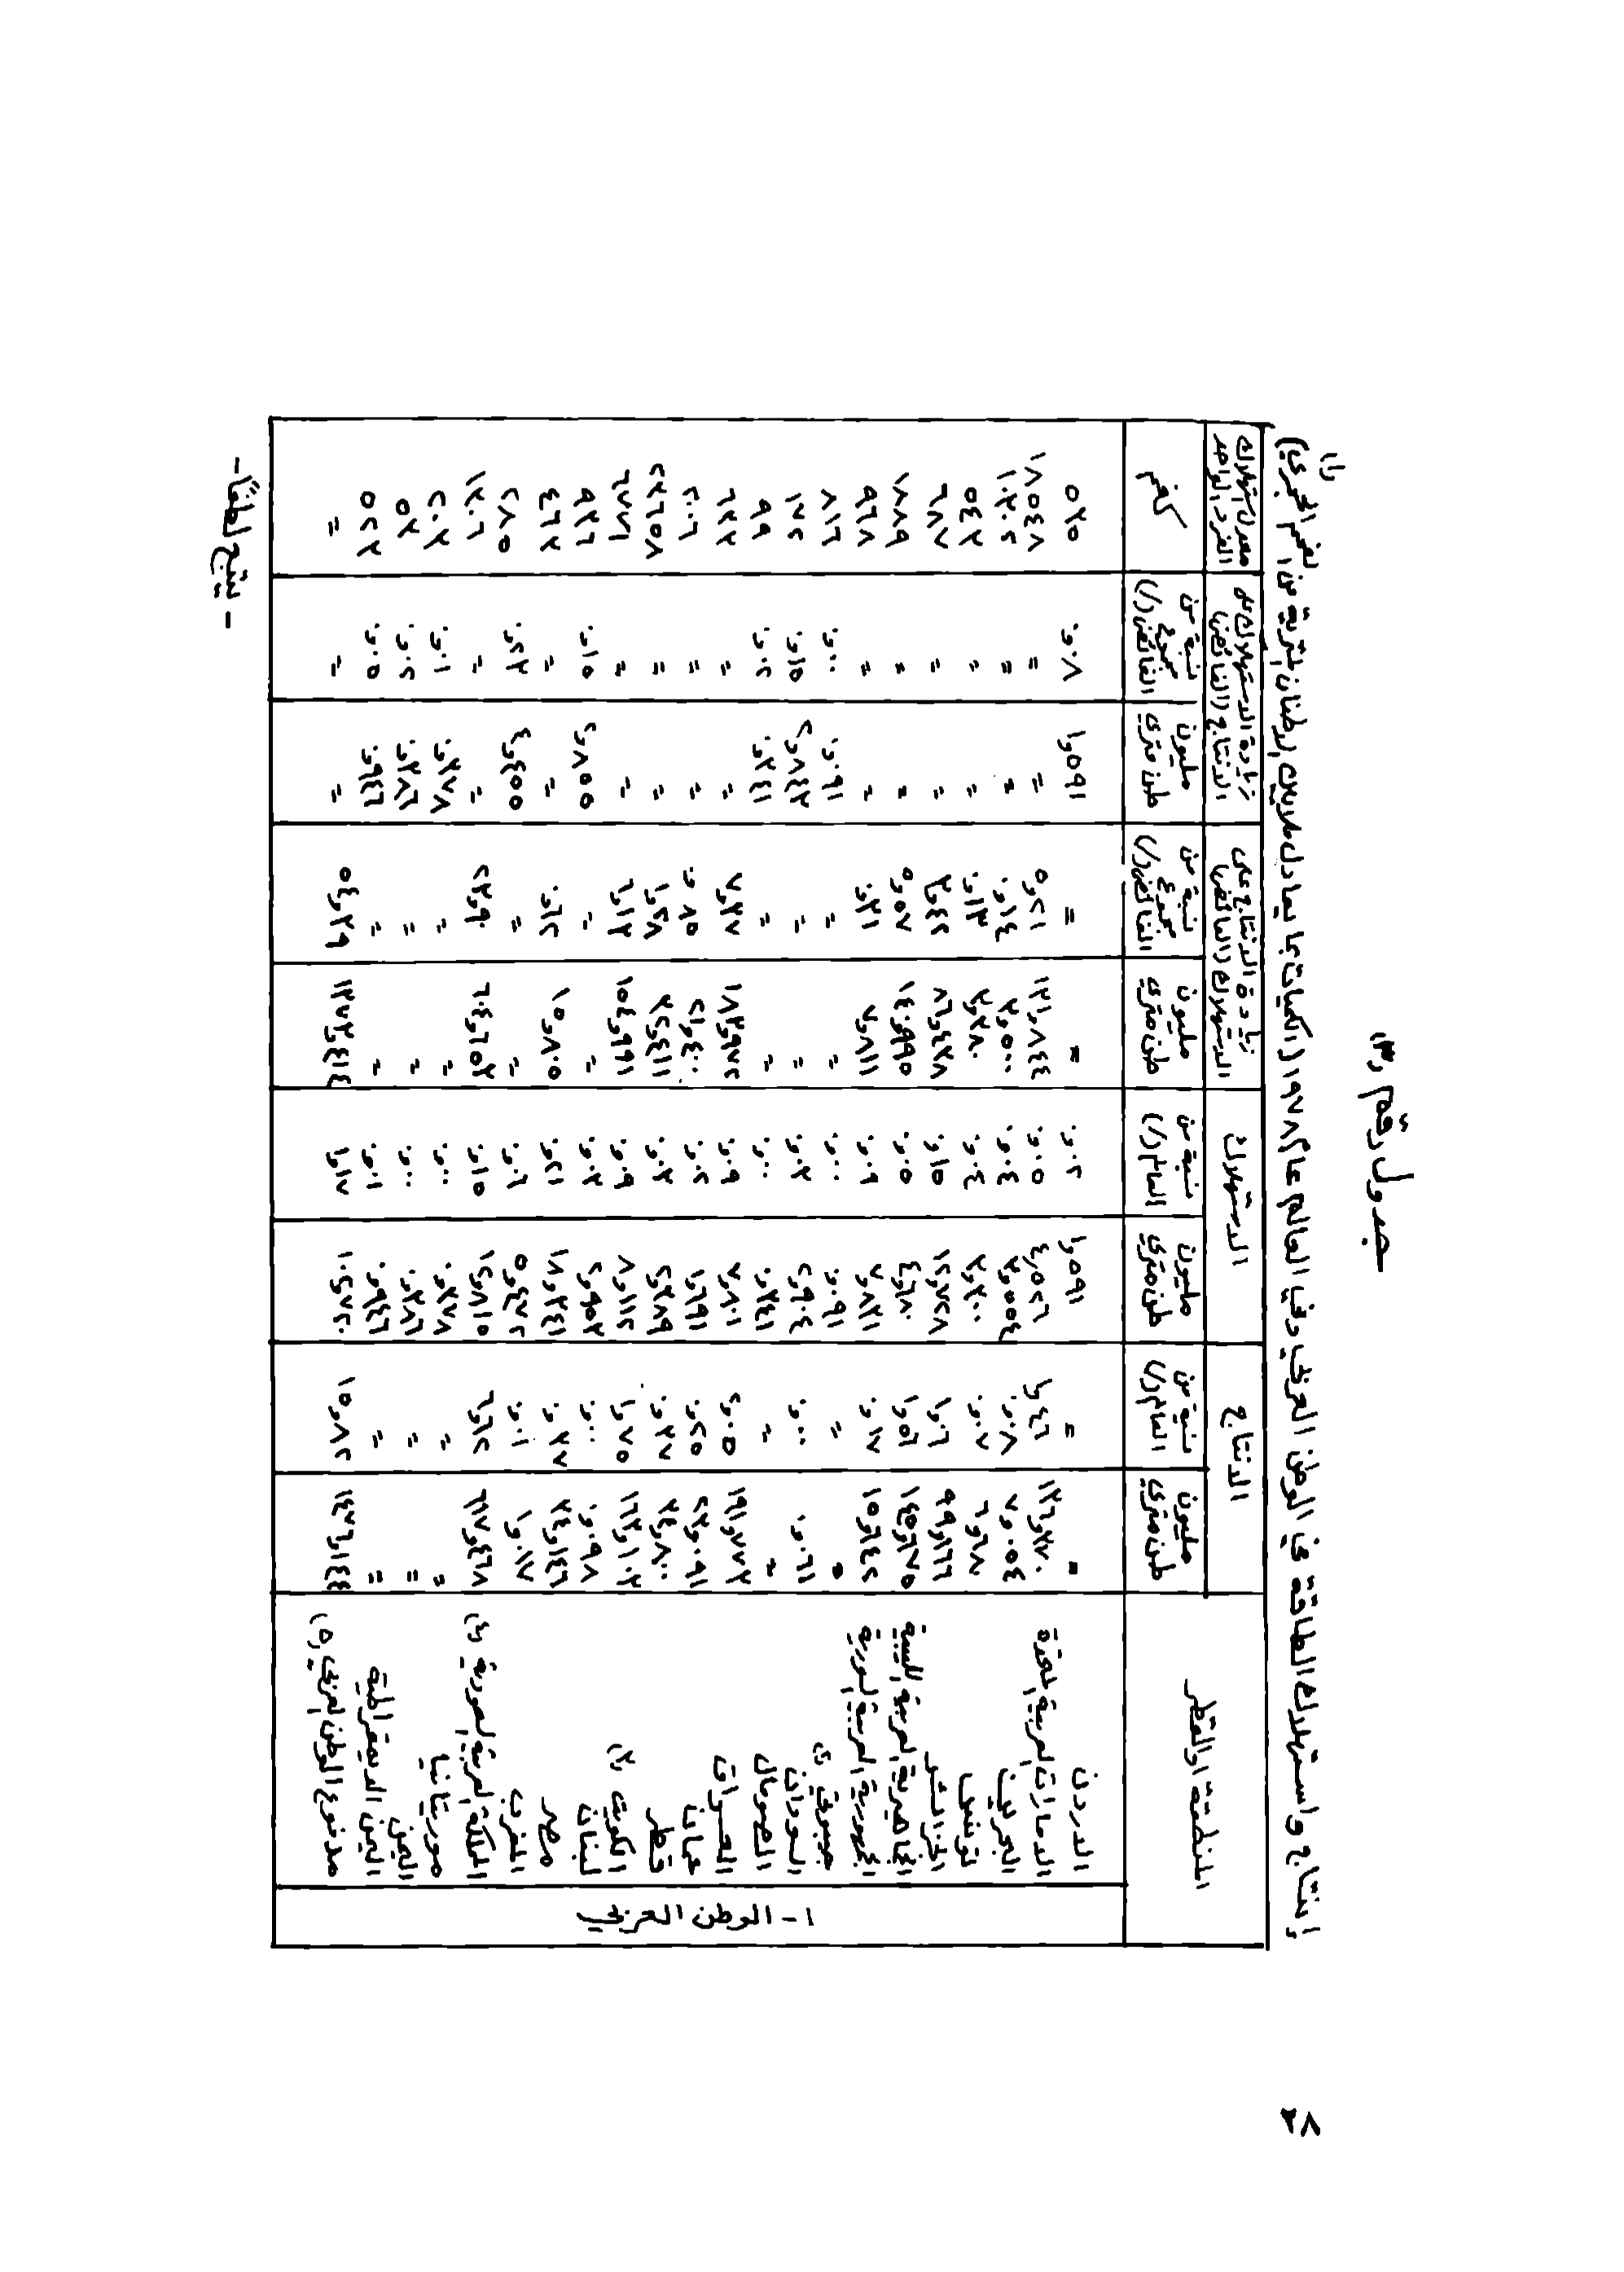 جدول رقم (٣)
إنتاج واستهلاك الطاقة في الوطن العربي وفي العالم عام ١٩٧٨ (الكميات بما يعادل ملايين الأطنان المترية من الفحم الحجري) (١)
المنطقة والقطر الانتاج الاستهلاك زيادة الانتاج على الاستهلاك (الفائض) زيادة الاستهلاك على الانتاج (الفائض) معدل استهلاك الفرد الواحد
مليون طن متري نسبة من العالم (٪) مليون طن متري نسبة من العالم (٪) مليون طن متري نسبة من مجموع الفائض (٪) مليون طن متري نسبة من مجموع الفائض (٪) كغم
١ - الوطن العربي
الاردن = = ١٫٥٩١ ٠٫٠٢ = = ١٫٥٩١ ٠٫٠٨ ٥٢٥
الامارات العربية المتحدة ١٣٦٫٣٧٠ ١٫٤٦ ٤٫٥٢٦ ٠٫٠٥ ١٣١٫٨٤٤ ٥٫٢١ = = ١٨٥٤٨
البحرين ٧٫٠٥٤ ٠٫٠٨ ٣٫٥٥٤ ٠٫٠٤ ٣٫٥٠٠ ٠٫١٤ = = ١٠٣٠٢
تونس ٦٫٦٨٠ ٠٫٠٧ ٣٫٣٠٠ ٠٫٠٤ ٣٫٣٨٠ ٠٫١٣ = = ٥٤٣
الجزائر ٩٩٫١٦٦ ١٫٠٦ ١٢٫٧٢٨ ٠٫١٥ ٨٦٫٤٣٨ ٣٫٤٢ = = ٦٨٧
الجماهيرية العربية الليبية ١٤٥٫٦٧٥ ١٫٥٦ ٤٫٦٨٠ ٠٫٠٥ ١٤٠٫٩٩٥ ٥٫٥٧ = = ١٨٨٩
الجمهورية العربية السورية ١٥٫٦٤٢ ٠٫١٧ ٧٫٨٣١ ٠٫٠٩ ٧٫٨١١ ٠٫٣١ = = ٩٦٨
جيبوتي (٢) = = ٠٫٠٩١ ٠٫٠٠ = = ٠٫٠٩١ ٠٫٠٠ ٨١٦
السودان ٠٫٠٦١ ٠٫٠٠ ٢٫٩٠٤ ٠٫٠٣ = = ٢٫٨٤٣ ٠٫١٥ ١٧٢
الصومال = = ٠٫٣٤١ ٠٫٠٠ = = ٠٫٣٤١ ٠٫٠٢ ٩٩
العراق ١٩١٫٧٧٣ ٢٫٠٥ ٧٫٨٠١ ٠٫٠٩ ١٨٣٫٩٧٢ ٧٫٢٧ = = ٦٣٢
عمان ٢٣٫٠٩١ ٠٫٢٥ ١٫٦٩١ ٠٫٠٢ ٢١٫٤٠٠ ٠٫٨٥ = = ٢٠٠٦
قطر ٣٤٫٨٠٠ ٠٫٣٧ ٢٫٣٨٩ ٠٫٠٣ ٣٢٫٤١١ ١٫٢٨ = = ٢٢٦٥٨
الكويت (٣) ١٦٣٫١٠٣ ١٫٧٥ ٨٫١١٢ ٠٫٠٩ ١٥٤٫٩٩١ ٦٫١٣ = = ٦٧٧١
لبنان ٠٫٠٩٨ ٠٫٠٠ ٢٫٩٥٣ ٠٫٠٣ = = ٢٫٨٥٥ ٠٫١٥ ٩٢٦
مصر ٣٤٫١٤٦ ٠٫٣٧ ١٨٫٣٤١ ٠٫٢١ ١٥٫٨٠٥ ٠٫٦٢ = = ٤٦٣
المغرب ١٫٠١٧ ٠٫٠١ ٥٫٤٧٢ ٠٫٠٦ = = ٤٫٤٥٥ ٠٫٢٣ ٢٨٥
المملكة العربية السعودية (٤) ٦١٧٫٤٦٨ ٦٫٦٢ ١٢٫٨١٥ ٠٫١٥ ٦٠٤٫٦٥٣ ٢٣٫٩٠ = = ١٣٠٦
موريتانيا = = ٠٫٢٧٨ ٠٫٠٠ = = ٠٫٢٧٨ ٠٫٠١ ٢٠٣
اليمن = = ٠٫٣٨٦ ٠٫٠٠ = = ٠٫٣٨٦ ٠٫٠٢ ٥٣
اليمن الديمقراطية = = ٠٫٩٤٦ ٠٫٠١ = = ٠٫٩٤٦ ٠٫٠٥ ٥٢٣
مجموع الوطن العربي (٥) ١٤٧٦٫١٤٤ ١٥٫٨٢ ١٠٢٫٧٣٠ ١٫١٧ ١٣٧٣٫٤١٤ ٥٤٫٢٩ = = =
- يتبع لطفًا -
٢٨